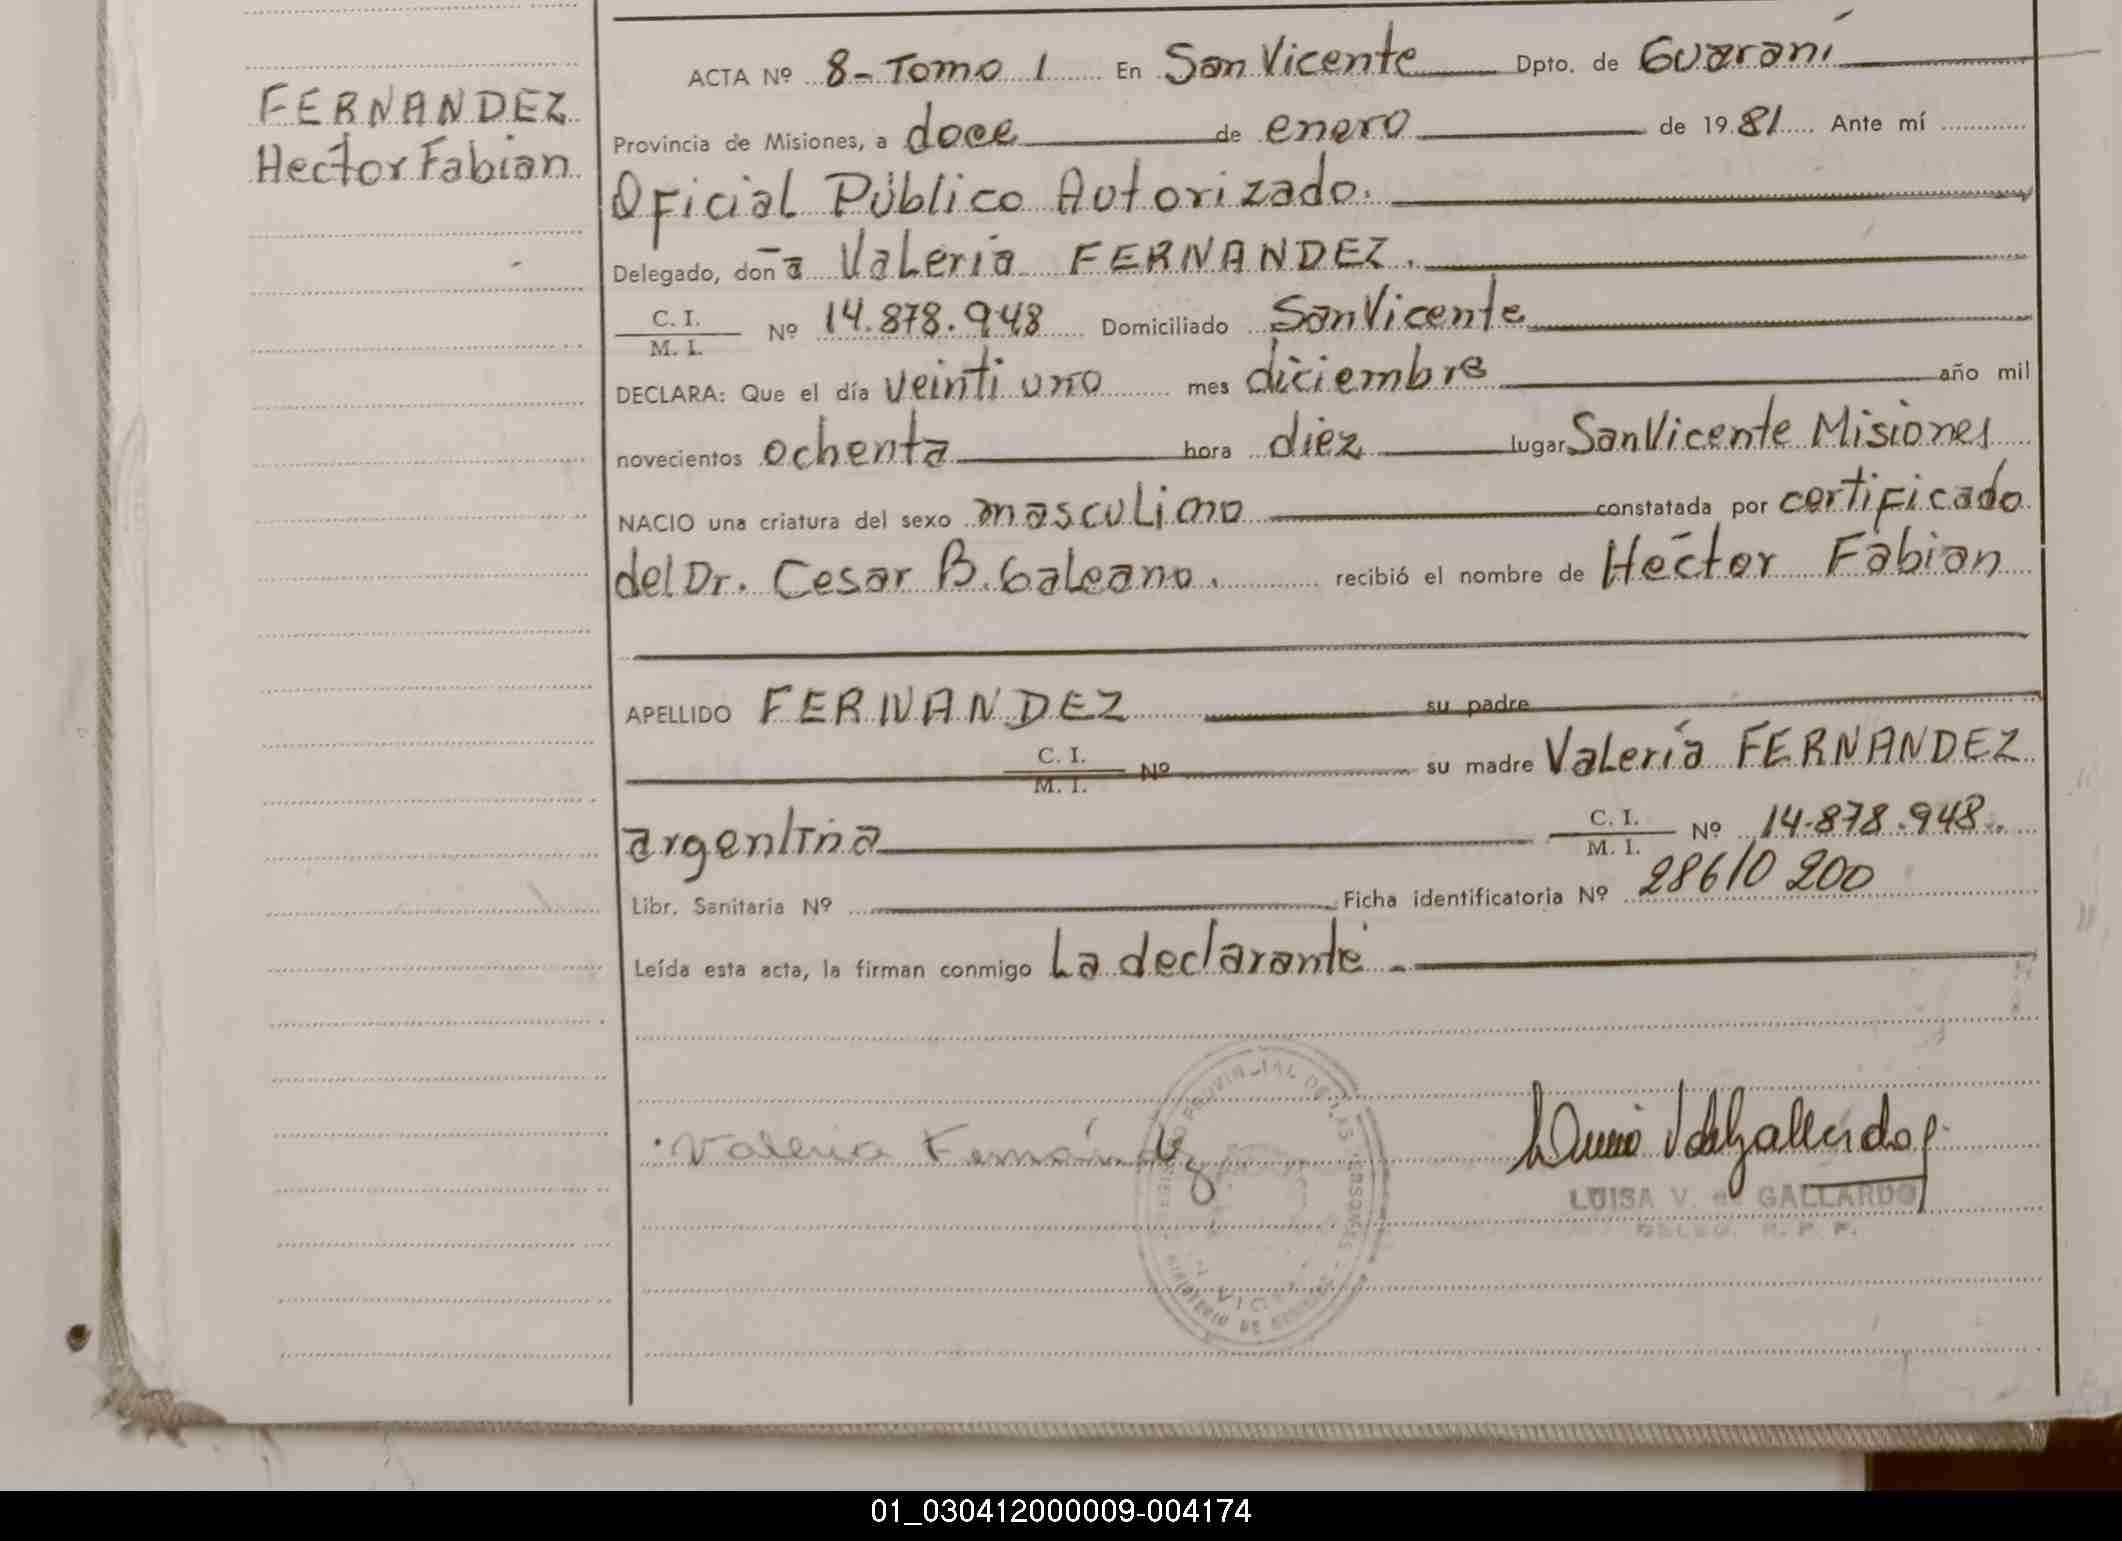 FERNANDEZ
Hector Fabian
ACTA Nº 8- Tomo 1 En San Vicente Dpto. de Guaraní
Provincia de Misiones, a doce de enero de 1981 Ante mí
Oficial Público Autorizado.
Delegado, don a Valeria FERNANDEZ.
C. I.
M. I. Nº 14.878.948 Domiciliado San Vicente
DECLARA: Que el día veinti uno mes diciembre año mil
novecientos ochenta hora diez lugar San Vicente Misiones
NACIO una criatura del sexo masculino constatada por certificado
del Dr. Cesar B. Galeano. recibió el nombre de Hector Fabian
APELLIDO FERNANDEZ su padre
C. I.
M. I. Nº su madre Valeria FERNANDEZ
argentina C. I.
M. I. Nº 14.878.948.
Libr. Sanitaria Nº Ficha identificatoria Nº 28610200
Leída esta acta, la firman conmigo La declarante
Valeria Fernández
LUISA V. de GALLARDO
DELEG. R. P. P.
01_030412000009-004174